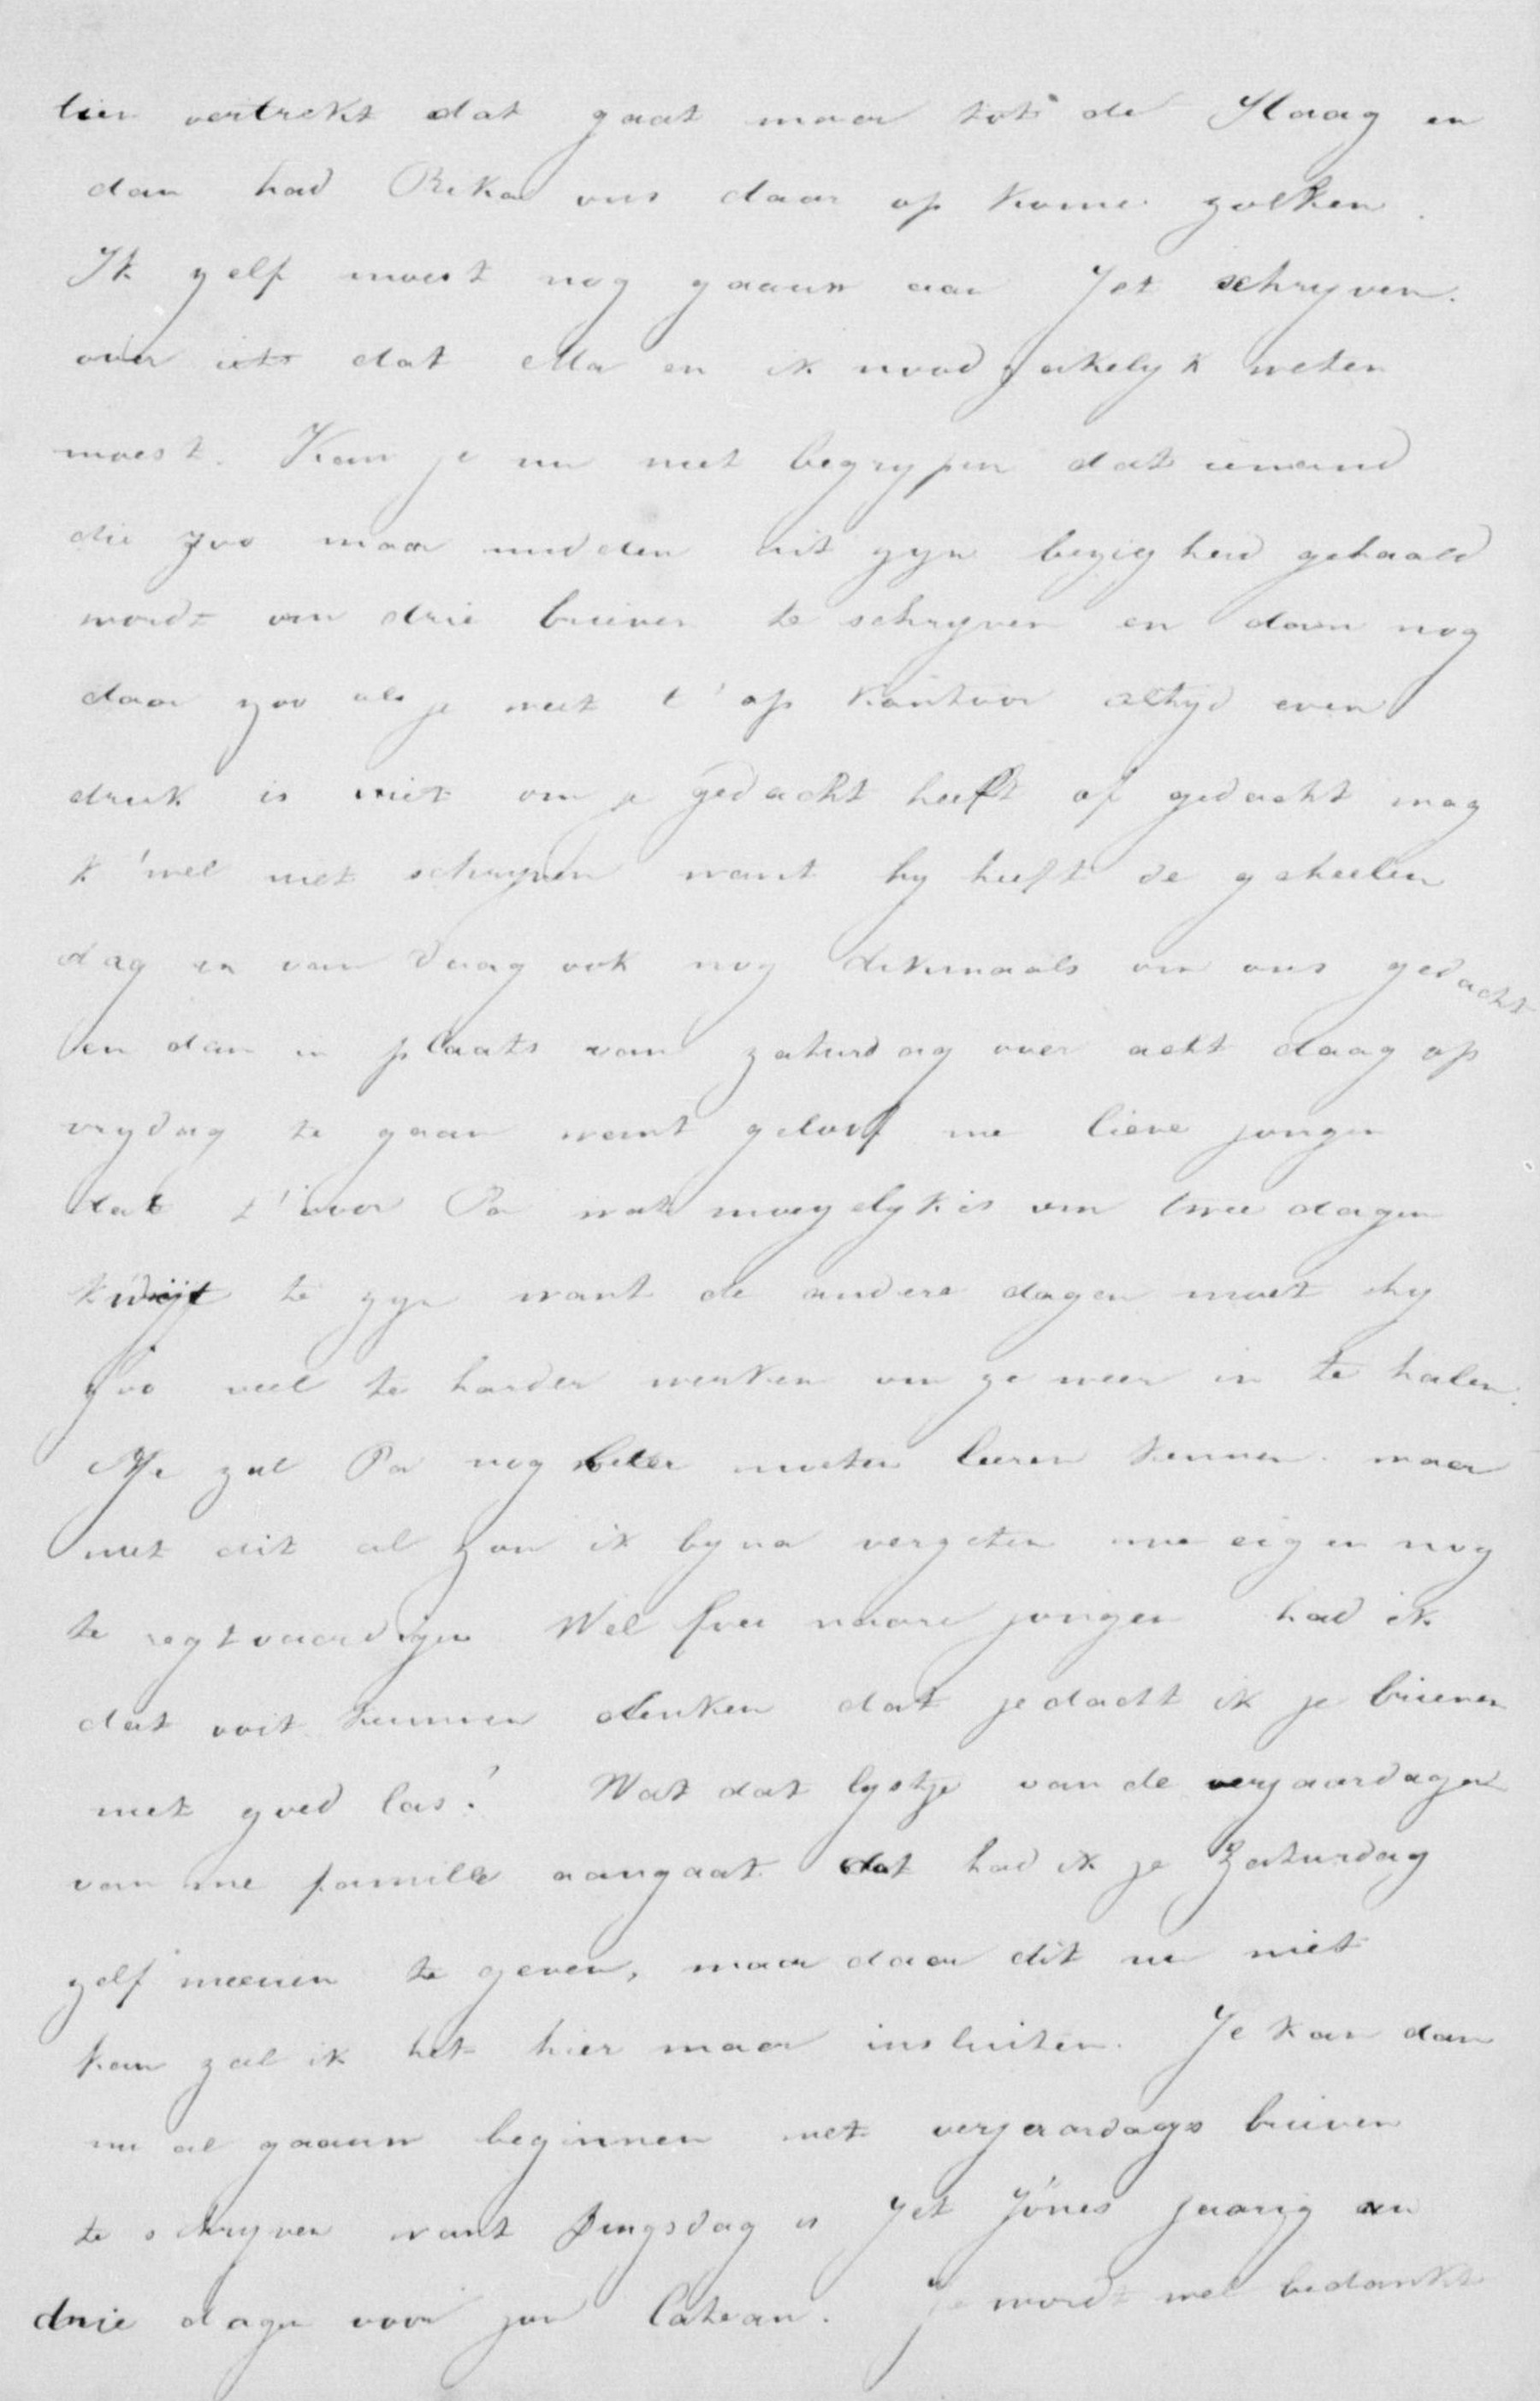 vertrekt dat gaat maar tot de Haag en
dan had Rika ons daar op kome zoeken.
Ik zelf moest nog gaauw aan Jet schryven.
over iets dat Ma en ik noodzakelyk weten
moest. Kan je nu niet begrypen dat iemand
die zoo maar midden uit zyn bezigheid gehaald
wordt om drie brieven te schryven en dan nog
daar zoo als je weet t' op kantoor altyd even
druk is niet om je gedacht heeft of gedacht mag
k' wel niet schryven want hy heeft de geheelen
dag en van daag ook nog dikmaals om ons gedacht
en dan in plaats van zaturdag over acht daag op
vrydag te gaan want geloof me lieve jongen
dat t' voor Pa wat moeyelyk is om twee dagen
kwijt te zyn want de andere dagen moet hy
zoo veel te harder werken om ze weer in te halen.
Je zal Pa nog beter moeten leeren kennen. maar
met dit al zou ik byna vergeten me eigen nog
te regtvaardigen Wel foei naare jongen had ik
dat ooit kunnen denken dat je dacht ik je brieven
niet goed las? Wat dat lystje van de verjaardagen
van me famille aangaat dat had ik je Zaturdag
zelf meenen te geven, maar daar dit nu niet
kan zal ik het hier maar insluiten. Je kan dan
nu al gaauw beginnen met verjaardags brieven
te schryven want Dingsdag is Jet Jönes jaarig en
drie dagen voor jou Cateau. Je wordt wel bedankt